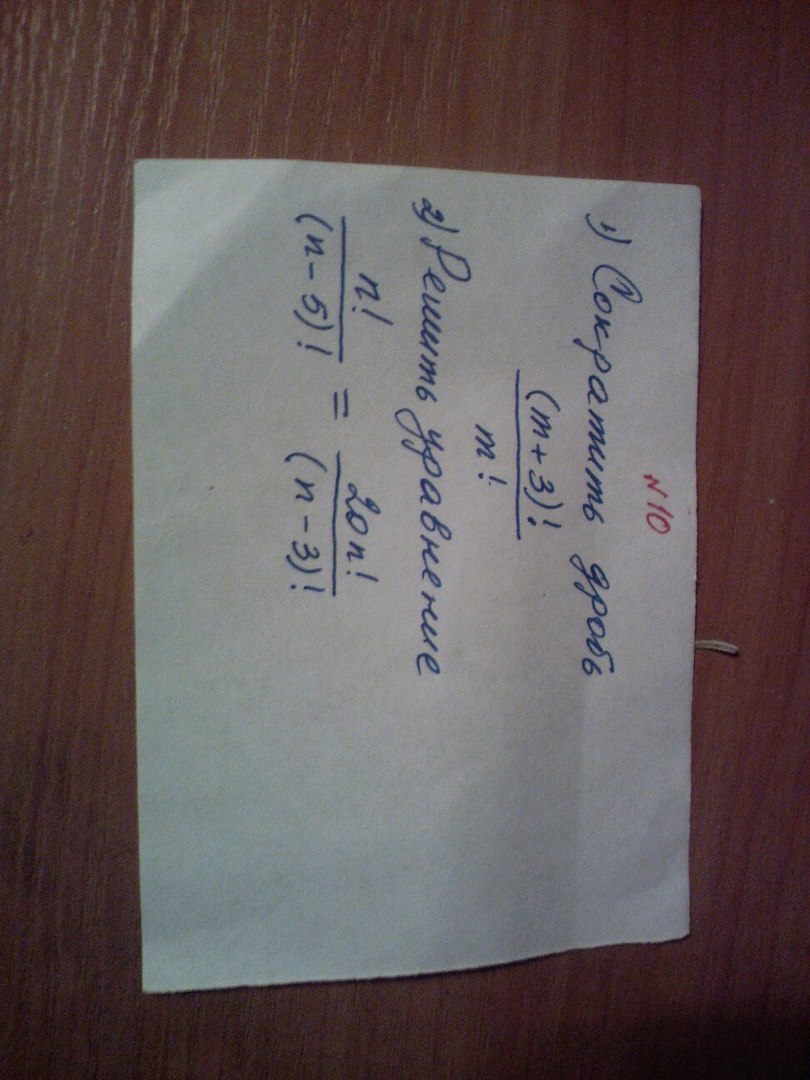 N10
1) Сократить дробь
(m+3)!
m!
2) Решить уравнение
n! / (n-5)! = 20n! / (n-3)!